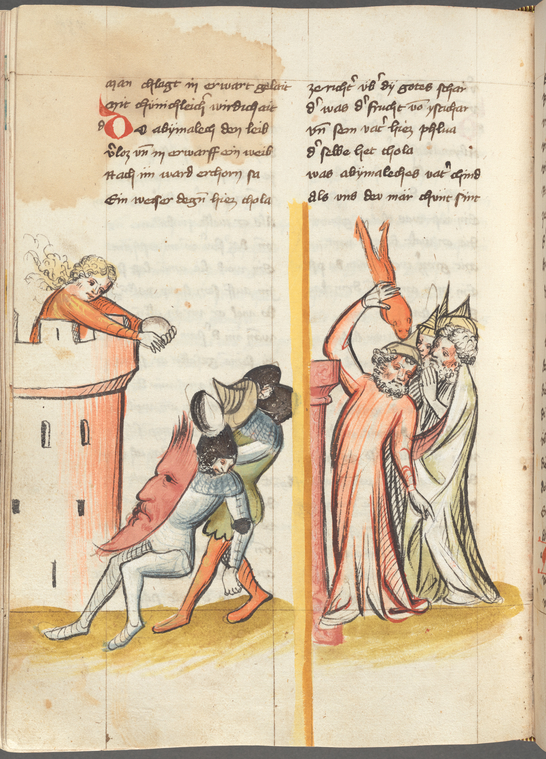 man chlagt in erwart gelait
mit chünichleich wirdichait
Do abymalech den leib
vˢloz vn̄ in erwarff ein weib
Nach im ward erchorn sa
Ein weiser degn̄ hiez thola
zericht vbˢ dÿ gotes schar
dˢ was dˢ frucht vō ysschar
vn̄ sein vatˢ hiez phua
dˢ selbe het thola
was abymaleches vatˢ chind
Als vns dew mär chunt sint